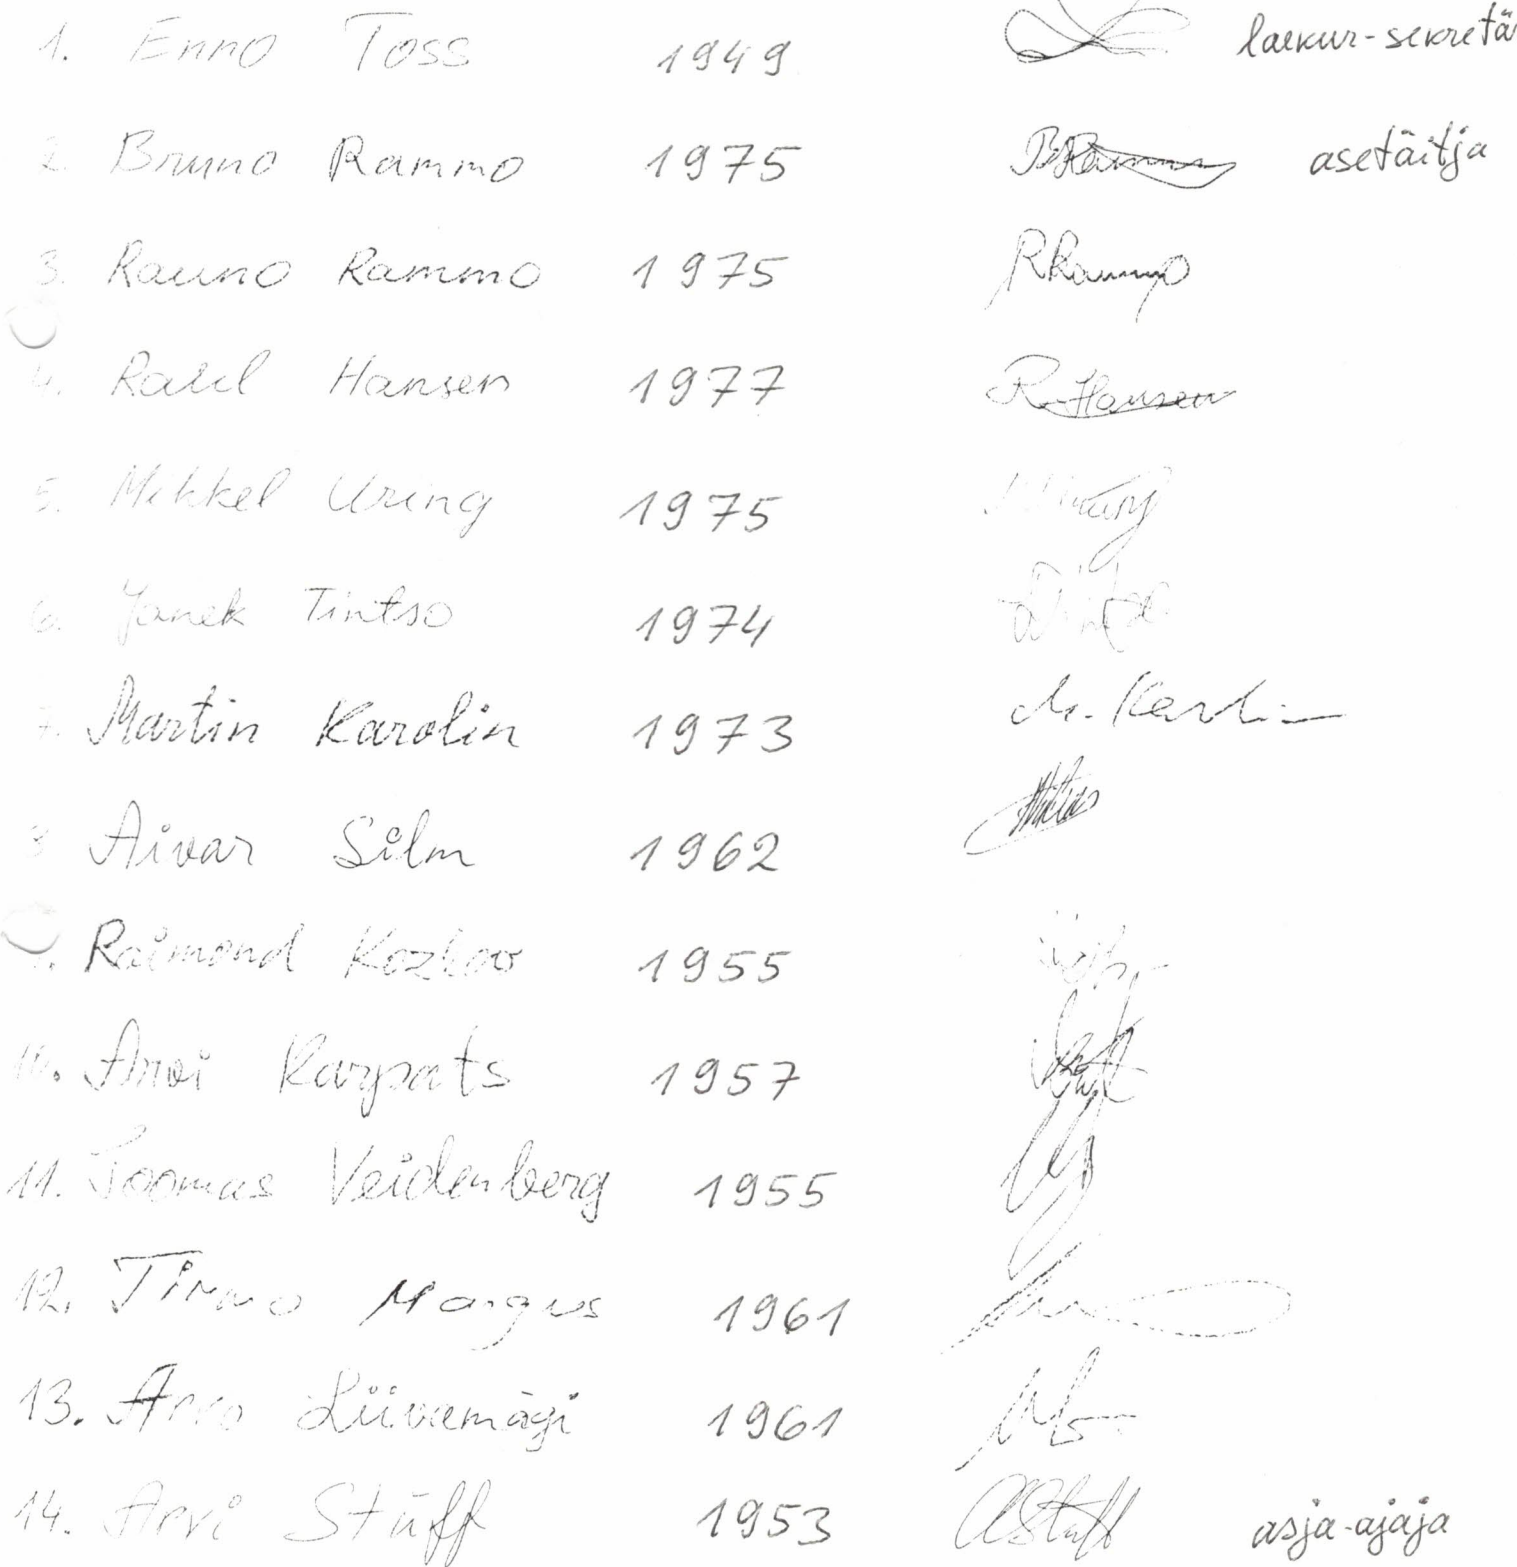 1. Enno Toss 1949 laekur-sekretä
2. Bruno Rammo 1975 BRammo asetäitja
3. Rauno Rammo 1975 RRammo
4. Raul Hansen 1977 R. Hansen
5. Mihkel Uring 1975
6. Janek Tintso 1974
7. Martin Karolin 1973 M. Karolin
8 Aivar Silm 1962
9. Raimond Kozlov 1955
10. Arvi Karpats 1957
11. Toomas Veidenberg 1955
12. Timmo Margus 1961
13. Arvo Liivamägi 1961
14. Arvi Stüff 1953 AStüff asja-ajaja